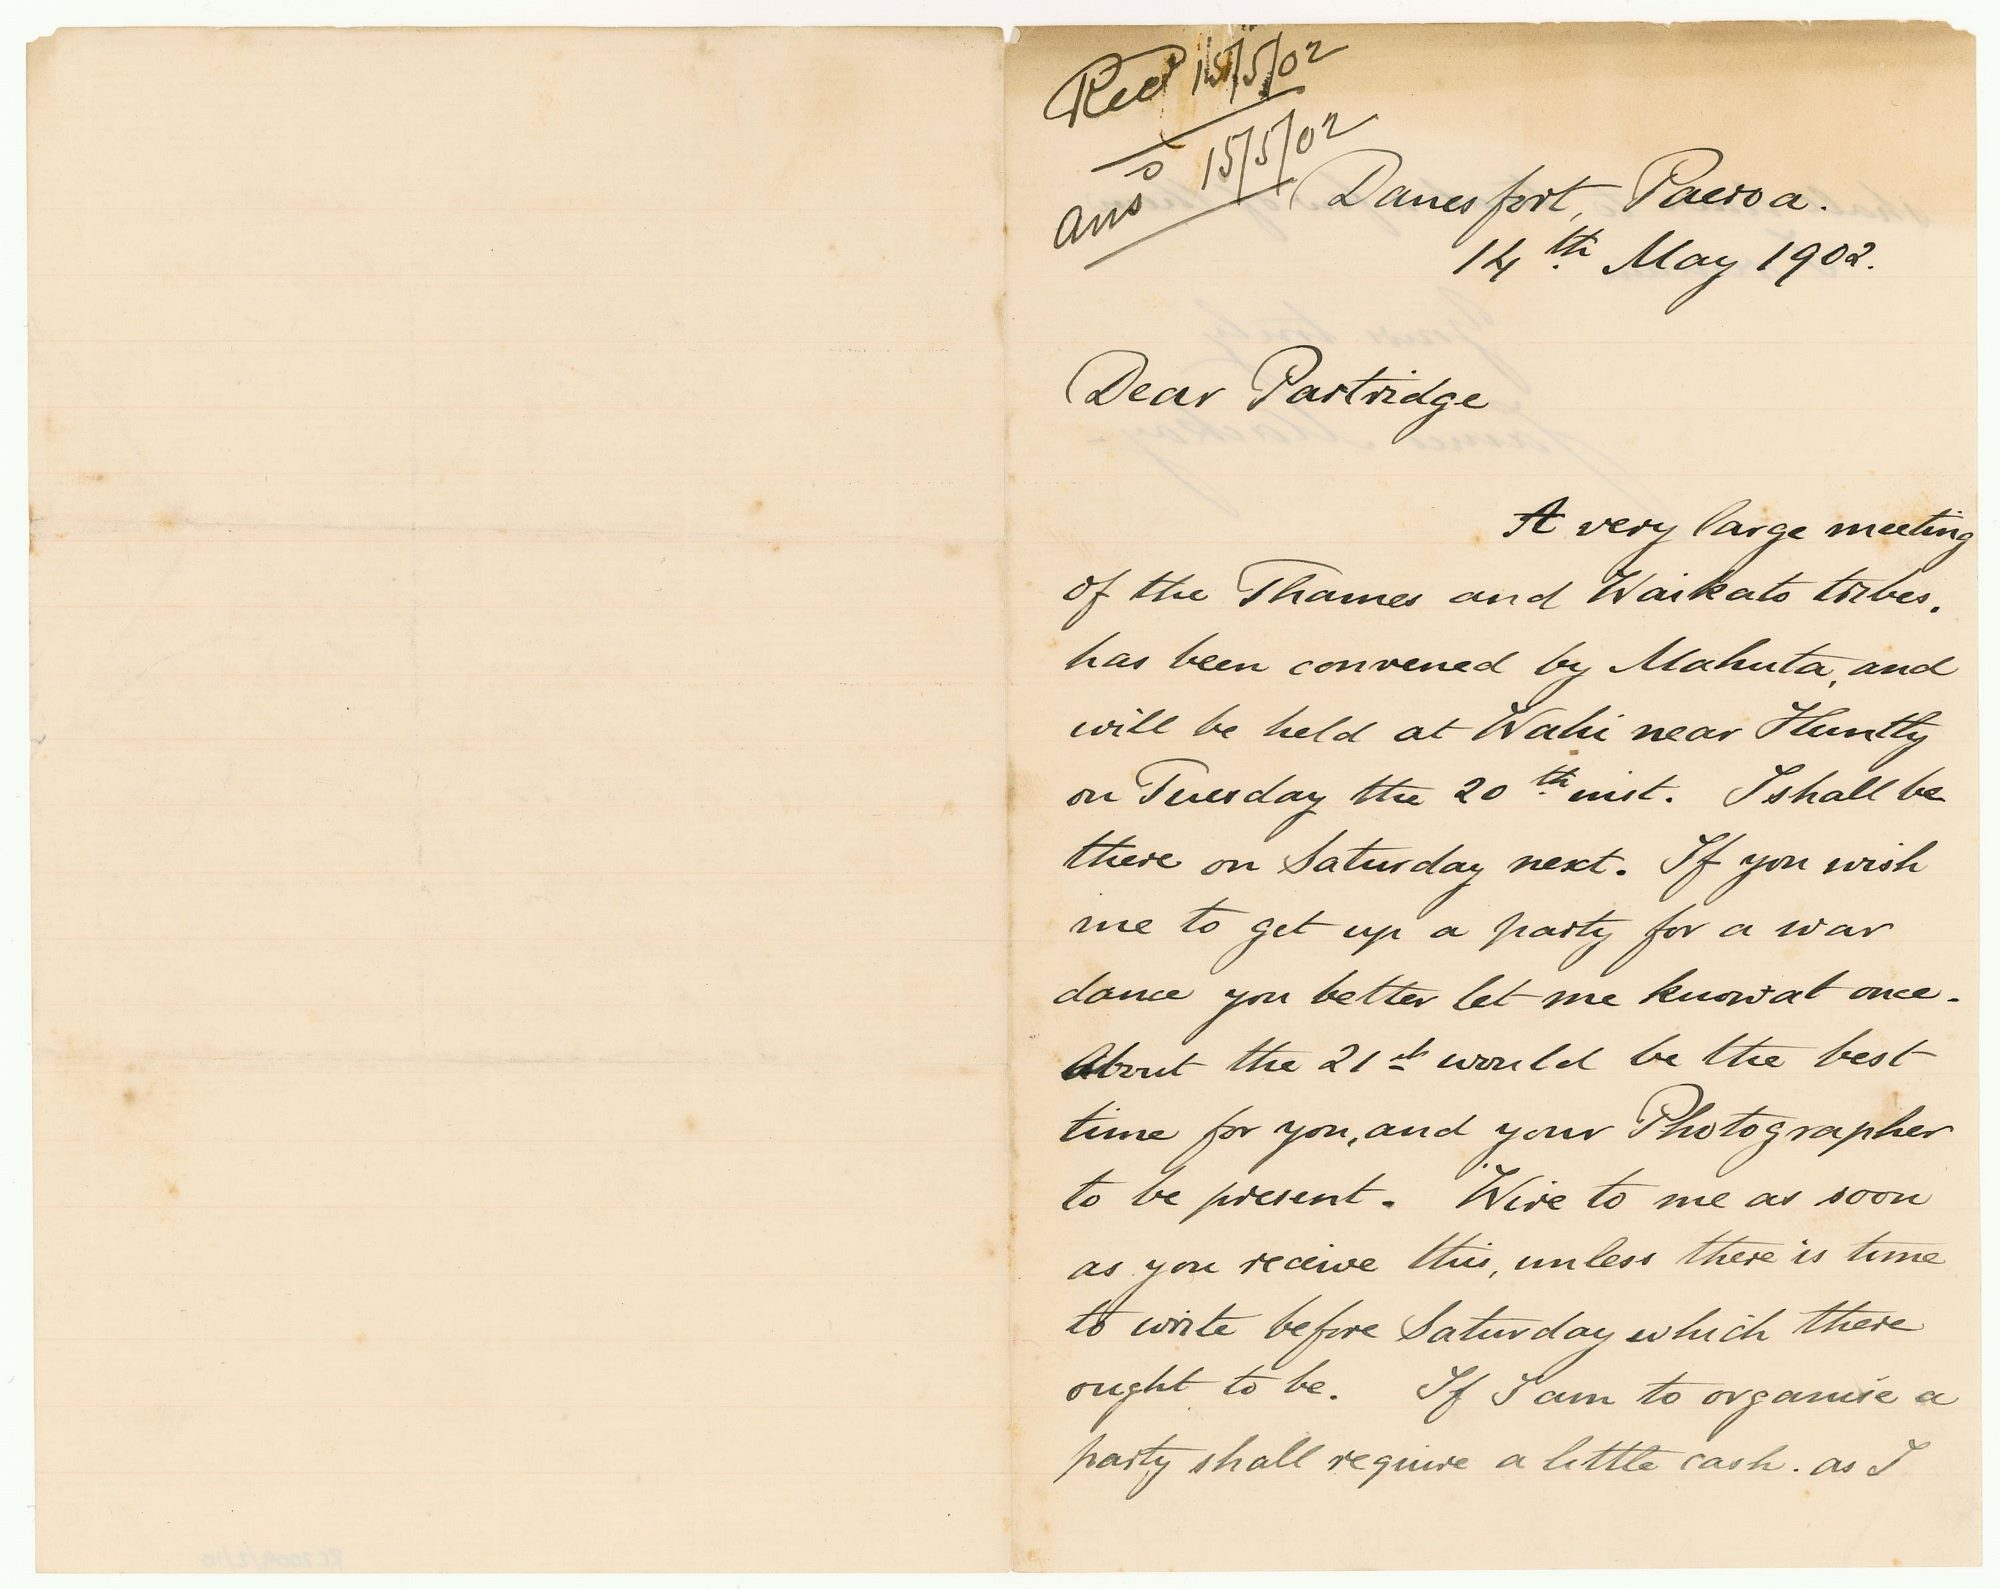 Recd 15/5/02
Ansd 15/5/02
Danesfort, Paeroa.
14th May 1902.
Dear Partridge
A very large meeting
of the Thames and Waikato tribes.
has been convened by Mahuta, and
will be held at Wahi near Huntly
on Tuesday the 20th inst. I shall be
there on Saturday next. If you wish
me to get up a party for a war
dance you better let me know at once.
About the 21st would be the best
time for you, and your Photographer
to be present. Wire to me as soon
as you receive this, unless there is time
to write before Saturday which there
ought to be. If I am to organise a
party shall require a little cash. as I